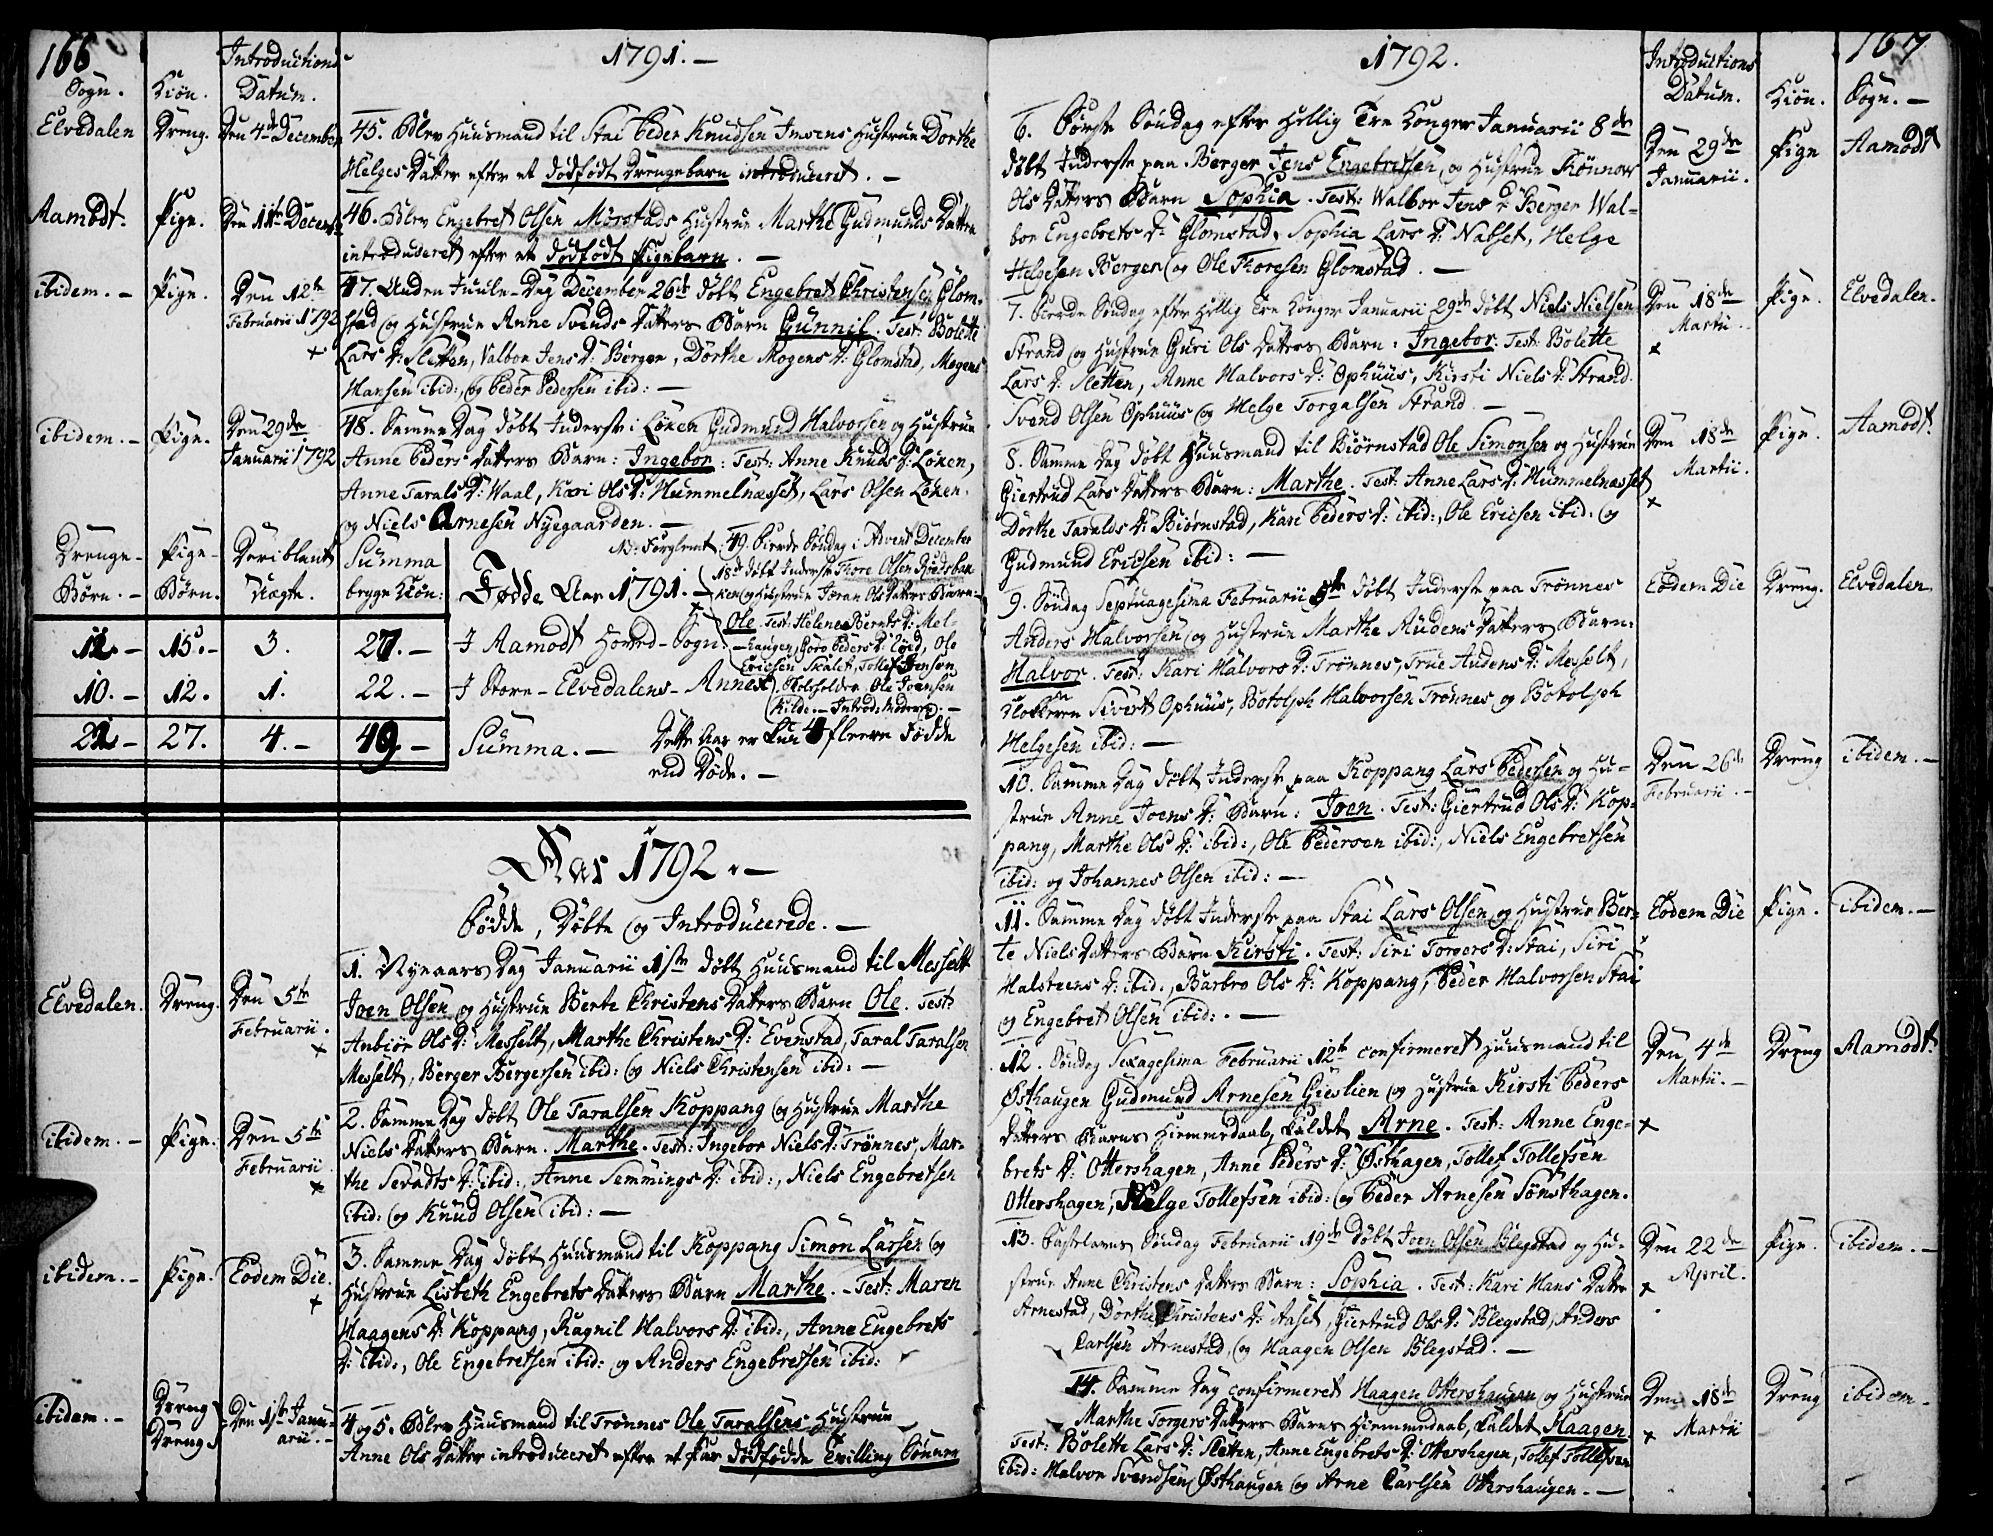 166
1791. —
Sogn. Kiøn. Introductions Datum.
Elvedalen Dreng. Den 4de December
45. Blev Huusmand til Stai Peder Knudsen Imoens Hustrue Dorthe
Helges Datter efter et dødfødt Drengebarn introduceret. —
Aamodt. Pige. Den 11te Decemb:
46. Blev Engebret Olsen Møystads Hustrue Marthe Gudmunds Datter
introduseret efter et dødfødt Pigebarn. —
ibidem. — Pige. Den 12te Februarii 1792
47. Anden Juule-Dag December 26de døbt Engebret Christensen Glom-
stad og Hustrue Anne Svends Datters Barn Gunnil. Test: Bolette
Lars D: Sletten, Valbor Jens D: Bergen, Dorthe Mogens D: Glomstad, Mogens
Hansen ibid:, og Peder Pedersen ibid: —
ibidem. — Pige. Den 29de Januarii 1792
48. Samme Dag døbt Inderste i Løken Gudmund Halvorsen og Hustrue
Anne Peders Datters Barn: Ingebor: Test: Anne Knuds D: Løken,
Anne Tarals D: Waal, Kari Ols D: Hummelnæsset, Lars Olsen Løken.
og Niels Arnesen Nyegaarden. —
NB: Forglemt: 49. Fierde Søndag i Advent December
18de døbt Inderste Thore Olsen Rudsbak-
ken og Hustrue Joran Ols Datters Barn
Ole. Test: Helene Bernts D: Mel-
haugen, Goro Peders D: Løed, Ole
Ericsen Skalet, Tollef Jensen
Skilsfolden, Ole Joensen
Kilde. — Introd: Moderen: —
Drenge-Børn. — Pige-Børn. Deriblant Uægte. Summa begge Kiøn:
Fødde Aar 1791. —
12. — 15. — 3. 27. — I Aamodt Hoved-Sogn.
10. — 12. 1. 22. — I Store-Elvedalens-Annex
22 — 27. 4. — 49. — Summa. —
Dette Aar er kun 4 fleere Fødde
end Døde. —
Aar 1792. —
Fødde, Døbte og Introducerede. —
Elvedalen. Dreng. Den 5te Februarii.
1. Nyeaars Dag Januarii 1ste døbt Huusmand til Messelt
Joen Olsen og Hustrue Berte Christens Datters Barn Ole. Test:
Anbiør Ols D: Messelt, Marthe Christens D: Evenstad, Taral Taralsen
Messelt, Berger Bergersen ibid: og Niels Christensen ibid: —
ibidem. — Pige. Den 5te Februarii
2. Samme Dag døbt Ole Taralsen Koppang og Hustrue Marthe
Niels Datters Barn. Marthe. Test: Ingebor Niels D: Trønnes, Mar-
the Sevadts D: ibid:, Anne Semmings D: ibid:, Niels Engebretsen
ibid: og Knud Olsen ibid: —
ibidem. — Pige. Eodem Die.
3. Samme Dag døbt Huusmand til Koppang Simon Larsen og
Hustrue Lisbeth Engebrets Datters Barn Marthe. — Test: Maren
Haagens D: Koppang, Ragnil Halvors D: ibid:, Anne Engebrets
D: ibid:, Ole Engebretsen ibid: og Anders Engebretsen ibid:
ibidem. — Dreng Dreng Den 1ste Januarii. —
4 og 5. Blev Huusmand til Trønnes Ole Taralsens Hustrue
Anne Ols Datter introduceret efter et Par dødfødde Tvilling Sønner
1792.
167
Introductions Datum. Kiøn. Sogn. —
6. Første Søndag efter Hellig Tre Konger Januarii 8de
døbt Inderste paa Berger Jens Engebretsen og Hustrue Kiønnow
Ols Datters Barn Sophia. Test: Walbor Jens D: Berger Wal-
bor Engebrets D: Glomstad, Sophia Lars D: Nabset, Helge
Helgesen Bergen og Ole Thoresen Glomstad. —
Den 29de Januarii. Pige Aamodt
7. Fierde Søndag efter Hellig Tre Konger Januarii 29de døbt Niels Nielsen
Strand og Hustrue Guri Ols Datters Barn: Ingebor: Test: Bolette
Lars D: Sletten, Anne Halvors D: Ophuus, Kirsti Niels D: Strand.
Svend Olsen Ophuus og Helge Torgalsen Strand. —
Den 18de Martii. Pige. Elvedalen.
8. Samme Dag døbt Huusmand til Biørnstad Ole Simonsen og Hustrue
Giertrud Lars Datters Barn: Marthe. Test: Anne Lars D: Hummelnæsset
Dorthe Taralds D: Biørnstad, Kari Peders D: ibid:, Ole Ericsen ibid: og
Gudmund Ericsen ibid: —
Den 18de Martii. Pige. Aamodt.
9. Søndag Septuagesima Februarii 5te døbt Inderste paa Trønnes
Anders Halvorsen og Hustrue Marthe Audens Datters Barn:
Halvor. Test: Kari Halvors D: Trønnes, True Audens D: Messelt,
Klokkeren Sivert Ophuus, Botolph Halvorsen Trønnes og Botolph
Helgesen ibid: —
Eodem Die Dreng. Elvedalen
10. Samme Dag døbt Inderste paa Koppang Lars Pedersen og Hu-
strue Anne Joens D: Barn: Joen. Test: Giertrud Ols D: Kop-
pang, Marthe Ols D: ibid:, Ole Pedersen ibid:, Niels Engebretsen
ibid: og Johannes Olsen ibid: —
Den 26de Februarii. — Dreng ibidem. —
11. Samme Dag døbt Inderste paa Stai Lars Olsen og Hustrue Ber-
te Niels Datters Barn Kirsti. Test: Siri Torgers D: Stai, Siri
Halsteens D: ibid:, Barbro Ols D: Koppang, Peder Halvorsen Stai
og Engebret Olsen ibid: —
Eodem Die Pige. ibidem. —
12. Søndag Sexagesima Februarii 12te confirmeret Huusmand til
Østhaugen Gudmund Arnesen Gieslien og Hustrue Kirsti Peders
Datters Barns Hiemmedaab, kaldet Arne. Test: Anne Enge-
brets D: Ottershagen, Anne Peders D: Østhagen, Tollef Tollefsen
Ottershagen, Helge Tollefsen ibid: og Peder Arnesen Sønsthagen.
Den 4de Martii. — Dreng Aamodt.
13. Fastelavns Søndag Februarii 19de døbt Joen Olsen Blegstad og Hu-
strue Anne Christens Datters Barn: Sophia. Test: Kari Hans Datter
Arnestad, Dorthe Christens D: Aaset, Giertrud Ols D: Blegstad, Anders
Carlsen Arnestad, og Haagen Olsen Blegstad. —
Den 22de April. Pige. ibidem. —
14. Samme Dag confirmeret Haagen Ottershaugen og Hustrue
Marthe Torgers Datters Barns Hiemmedaab, kaldet Haagen.
Test: Bolette Lars D: Sletten, Anne Engebrets D: Ottershagen, Tollef Tollefsen
ibid: Halvor Svendsen Østhaugen og Arne Carlsen Ottershaugen. —
Den 18de Martii Dreng ibidem.